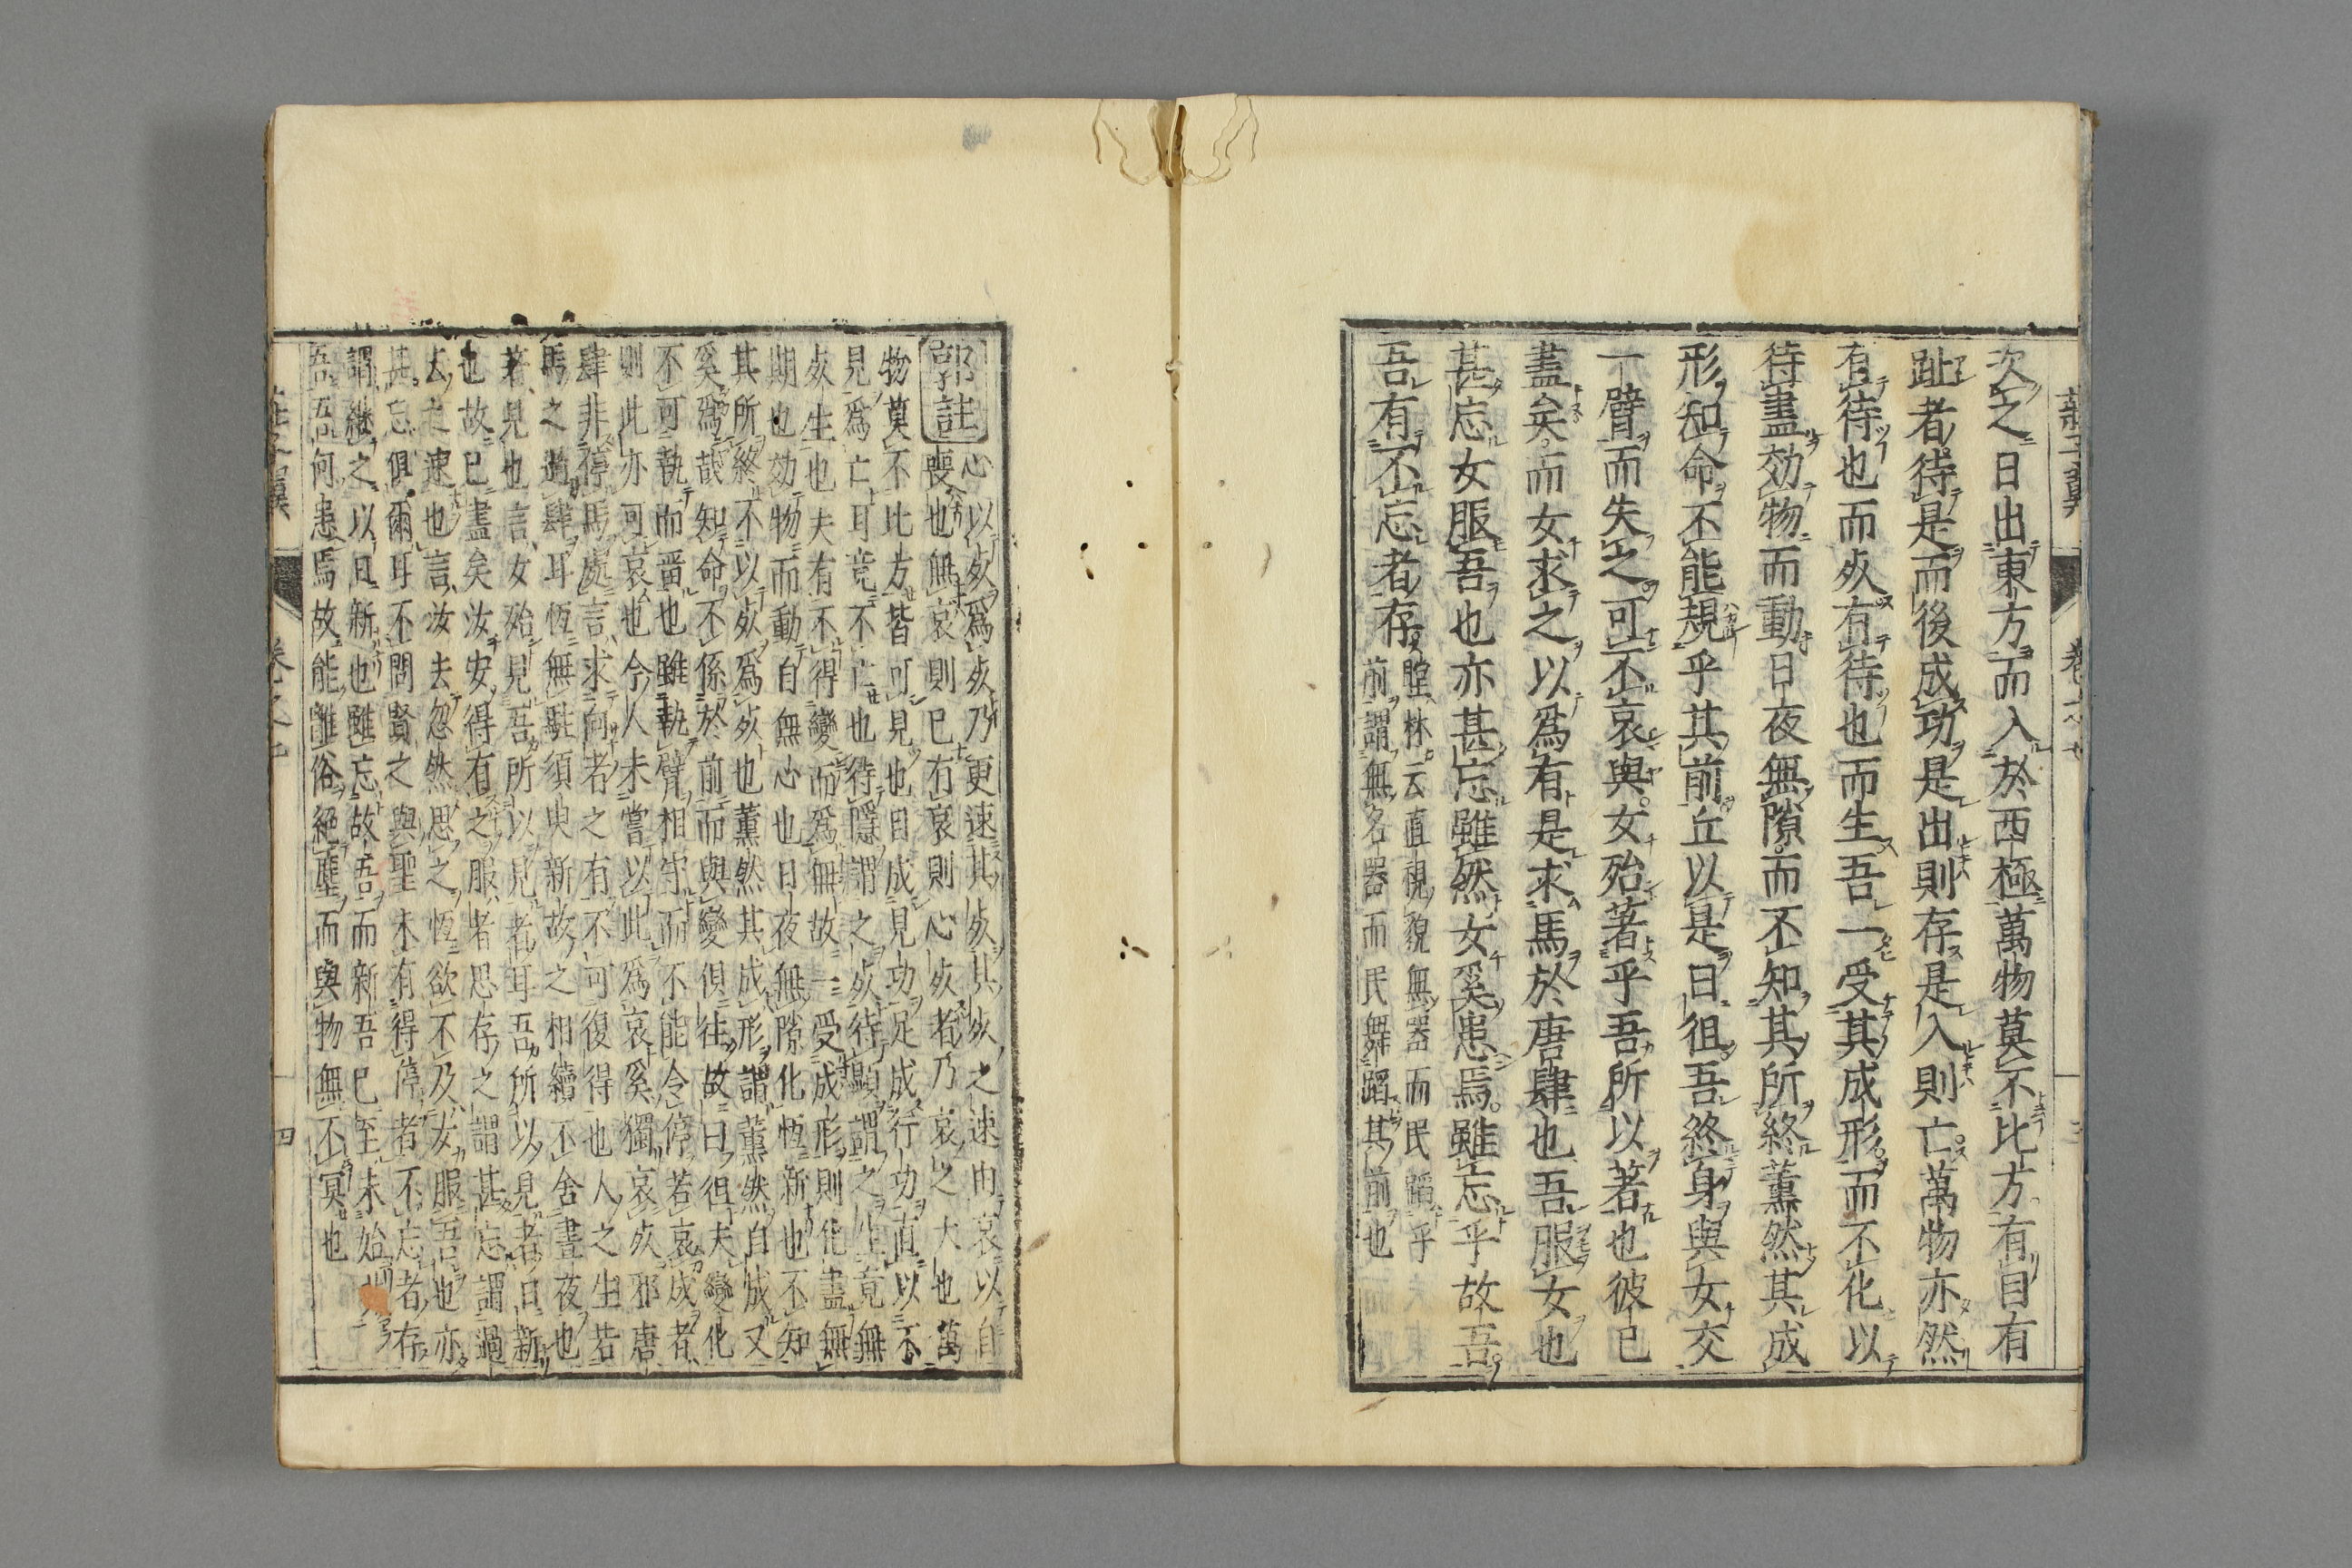 莊子翼
次之日出東方而入於西極萬物莫不比方有目有
趾者待是而後成功是出則存是入則亡萬物亦然
有待也而死有待也而生吾一受其成形而不化以
待盡効物而動日夜無隙而不知其所終薰然其成
形知命不能規乎其前丘以是日徂吾終身與女交
一臂而失之可不哀與女殆著乎吾所以著也彼已
盡矣而女求之以為有是求馬於唐肆也吾服女也
甚忘女服吾也亦甚忘雖然女奚患焉雖忘乎故吾
吾有不忘者存
瞠林云直視貌無器而民蹈乎
前謂無名器而民舞蹈其前也
郭註
心以死為死乃更速其死其死之速由哀以自
喪也無哀則已有哀則心死者乃哀之大也萬
物莫不比方皆可見也目成見功足成行功直以不
見為亡耳竟不亡也待隱謂之死待顯謂之生竟無
死生也夫有不得變而為無故一受成形則化盡無
期也効物而動自無心也日夜無隙化恆新也不知
其所終不以死為死也薰然其成形謂薰然自成又
奚為哉知命不係於前而與變俱往故曰徂夫變化
不可執而畱也雖執臂相守而不能令停若哀成者
則此亦可哀也今人未嘗以此為哀奚獨哀死邪唐
肆非停馬處言求向者之有不可復得也人之生若
馬之過肆耳恆無駐須臾新故之相續不舍晝夜也
著見也言女殆見吾所以見者耳吾所以見者日新
也故已盡矣汝安得有之服者思存之謂甚忘謂過
去之速也言汝去忽然思之恆欲不及女服吾也亦
甚忘俱爾耳不問賢之與聖未有得停者不忘者存
謂繼之以日新也雖忘故吾而新吾已至未始
吾吾何患焉故能離俗絕塵而與物無不冥也
莊子翼
四